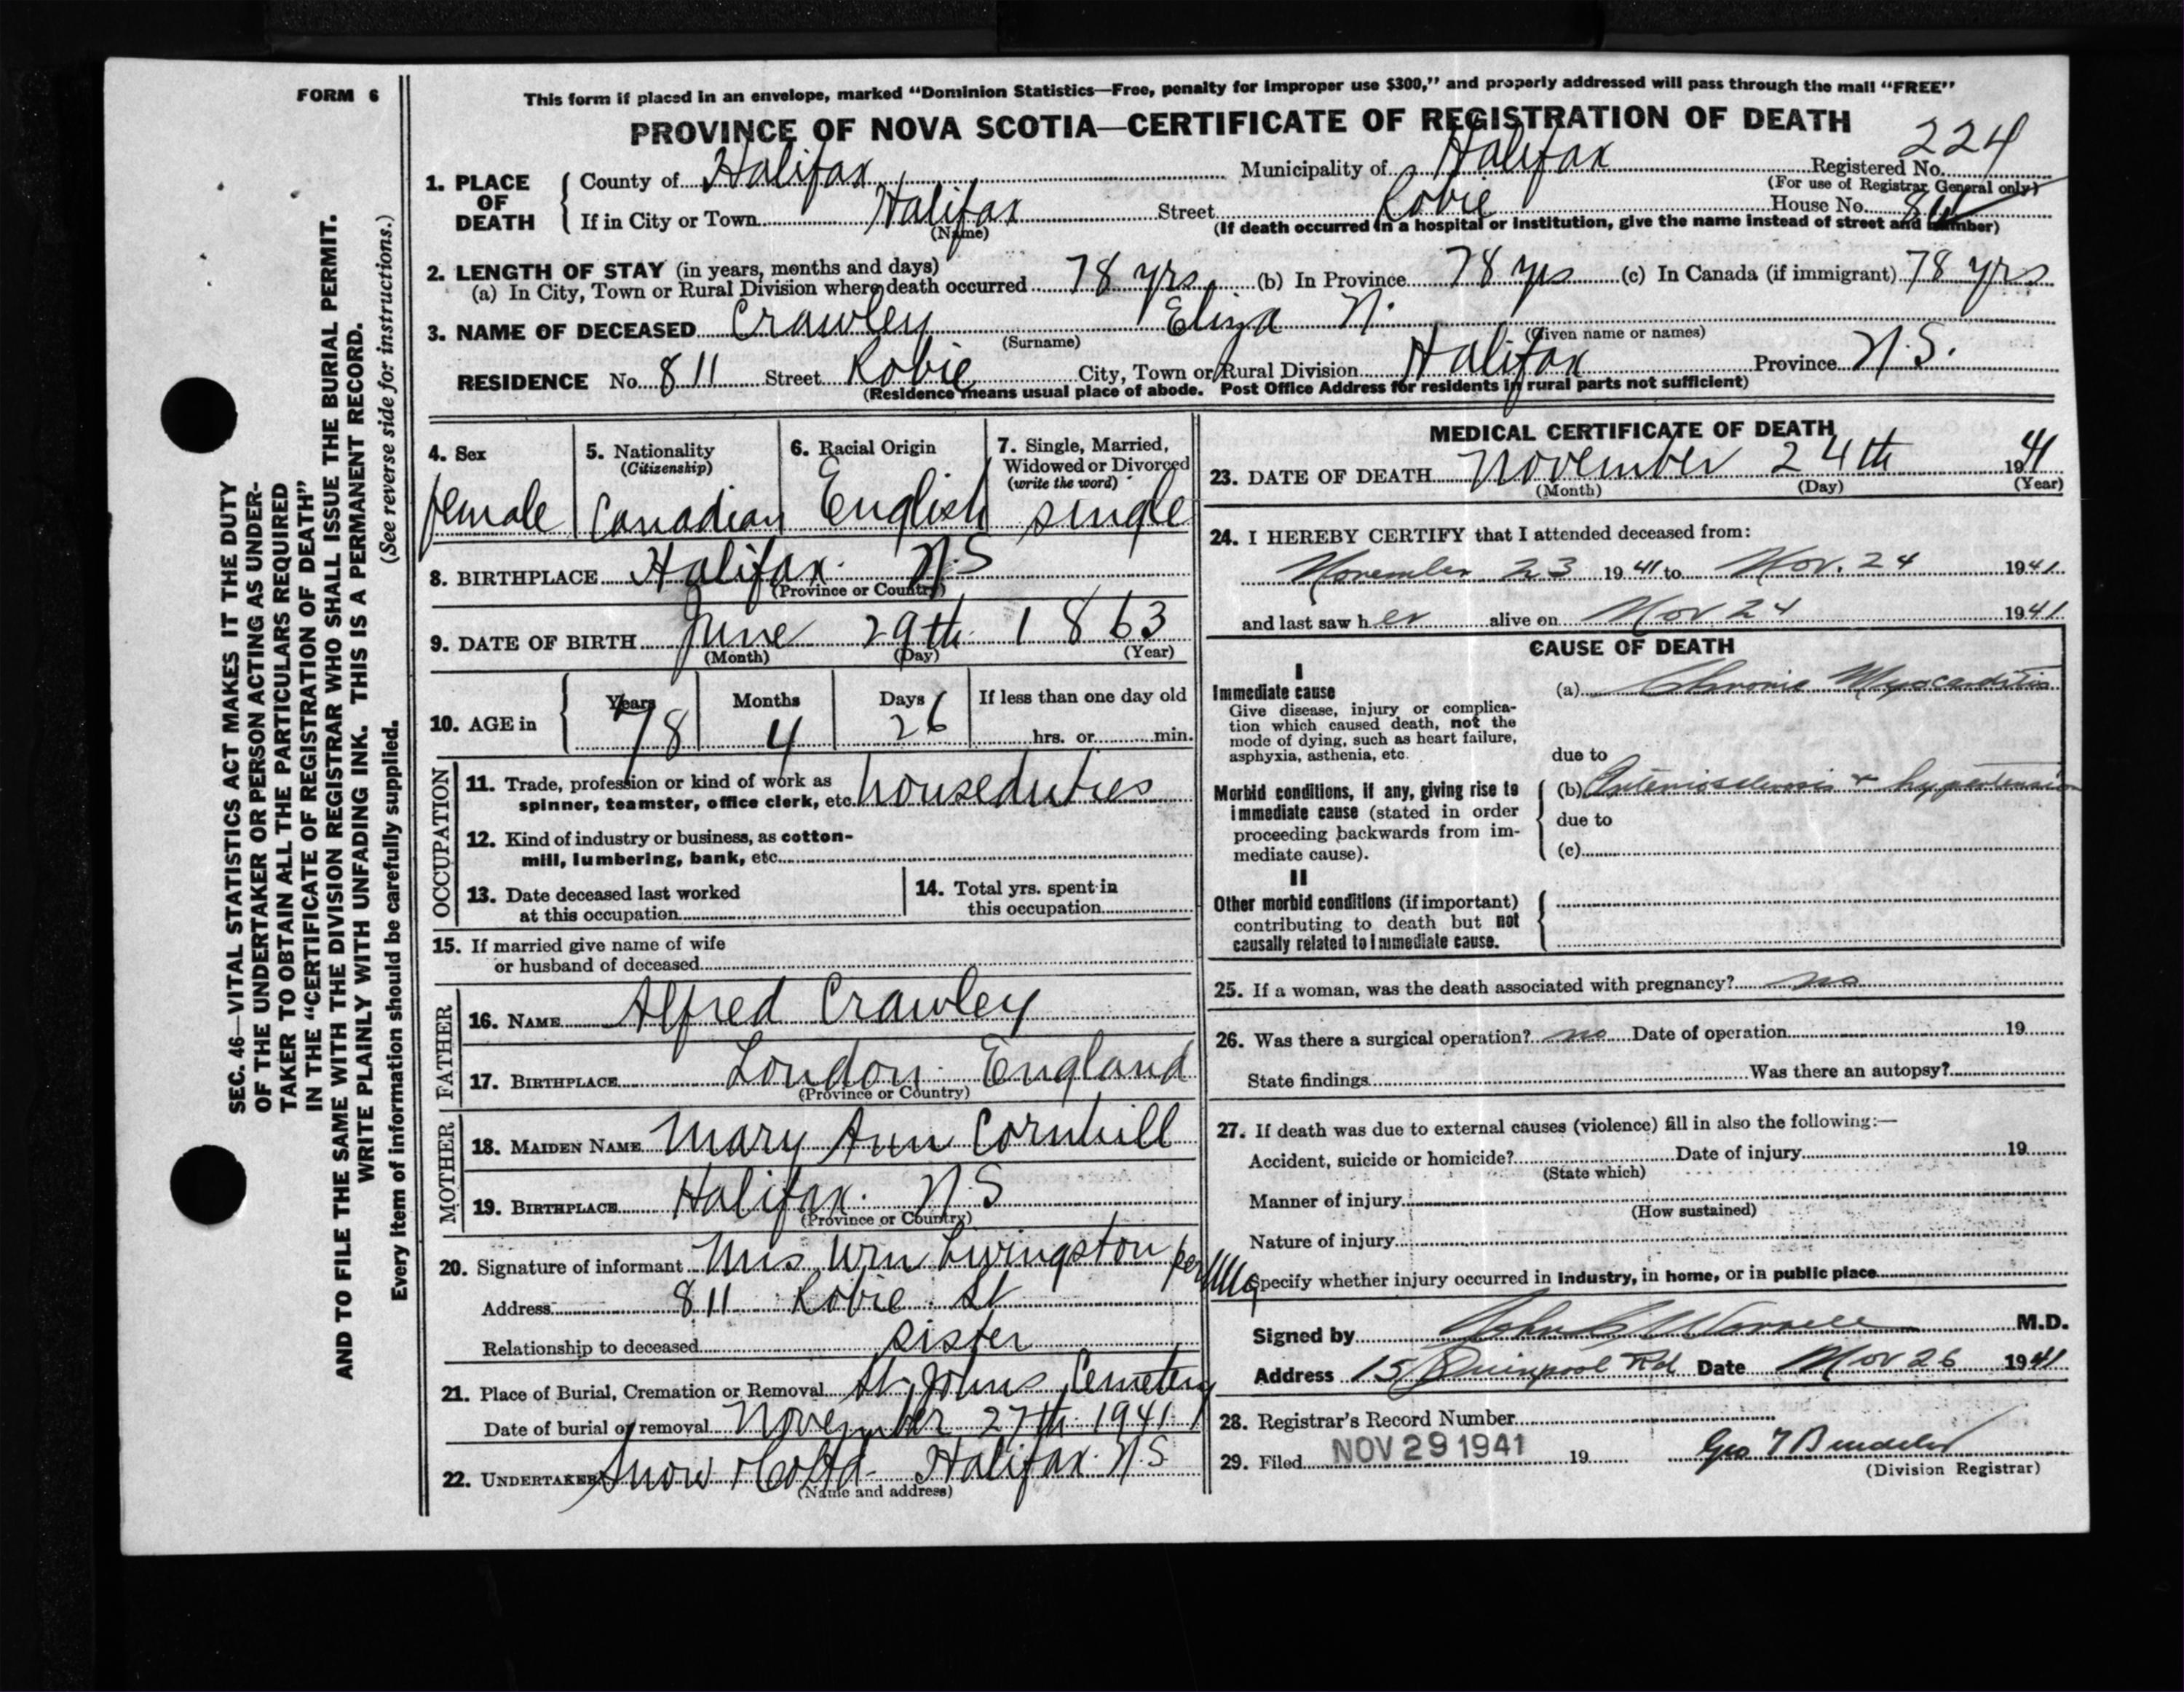 FORM 6
This form if placed in an envelope, marked "Dominion Statistics—Free, penalty for improper use $300," and properly addressed will pass through the mail "FREE"
PROVINCE OF NOVA SCOTIA—CERTIFICATE OF REGISTRATION OF DEATH
224
1. PLACE OF DEATH
County of Halifax Municipality of Halifax Registered No.
(For use of Registrar General only)
If in City or Town Halifax Street Robie House No. 811
(Name) (If death occurred in a hospital or institution, give the name instead of street and number)
2. LENGTH OF STAY (in years, months and days)
(a) In City, Town or Rural Division where death occurred 78 yrs (b) In Province 78 yrs (c) In Canada (if immigrant) 78 yrs
3. NAME OF DECEASED Crawley Eliza N.
(Surname) (Given name or names)
RESIDENCE No. 811 Street Robie City, Town or Rural Division Halifax Province N.S.
(Residence means usual place of abode. Post Office Address for residents in rural parts not sufficient)
SEC. 46—VITAL STATISTICS ACT MAKES IT THE DUTY
OF THE UNDERTAKER OR PERSON ACTING AS UNDER-
TAKER TO OBTAIN ALL THE PARTICULARS REQUIRED
IN THE "CERTIFICATE OF REGISTRATION OF DEATH"
AND TO FILE THE SAME WITH THE DIVISION REGISTRAR WHO SHALL ISSUE THE BURIAL PERMIT.
WRITE PLAINLY WITH UNFADING INK. THIS IS A PERMANENT RECORD.
(See reverse side for instructions.)
Every item of information should be carefully supplied.
4. Sex
female
5. Nationality
(Citizenship)
Canadian
6. Racial Origin
English
7. Single, Married,
Widowed or Divorced
(write the word)
single
8. BIRTHPLACE Halifax. N.S
(Province or Country)
9. DATE OF BIRTH June 29th 1863
(Month) (Day) (Year)
10. AGE in
Years Months Days If less than one day old
78 4 26 hrs. or min.
OCCUPATION
11. Trade, profession or kind of work as
spinner, teamster, office clerk, etc. houseduties
12. Kind of industry or business, as cotton-
mill, lumbering, bank, etc.
13. Date deceased last worked
at this occupation
14. Total yrs. spent in
this occupation
15. If married give name of wife
or husband of deceased
FATHER
16. NAME Alfred Crawley
17. BIRTHPLACE London England
(Province or Country)
MOTHER
18. MAIDEN NAME Mary Ann Cornhill
19. BIRTHPLACE Halifax. N.S
(Province or Country)
20. Signature of informant Mrs Wm Livingston per
Address 811 Robie St
Relationship to deceased sister
21. Place of Burial, Cremation or Removal St. Johns Cemetery
Date of burial or removal November 27th 1941
22. UNDERTAKER Snow & Co Ltd. Halifax N.S.
(Name and address)
MEDICAL CERTIFICATE OF DEATH
23. DATE OF DEATH November 24th 1941
(Month) (Day) (Year)
24. I HEREBY CERTIFY that I attended deceased from:
November 23 1941 to Nov. 24 1941
and last saw her alive on Nov 24 1941
CAUSE OF DEATH
I
Immediate cause
Give disease, injury or complica-
tion which caused death, not the
mode of dying, such as heart failure,
asphyxia, asthenia, etc.
(a) Chronic Myocarditis
due to
Morbid conditions, if any, giving rise to
immediate cause (stated in order
proceeding backwards from im-
mediate cause).
(b) Arteriosclerosis & hypertension
due to
(c)
II
Other morbid conditions (if important)
contributing to death but not
causally related to immediate cause.
25. If a woman, was the death associated with pregnancy? no
26. Was there a surgical operation? no Date of operation 19
State findings Was there an autopsy?
27. If death was due to external causes (violence) fill in also the following:—
Accident, suicide or homicide? Date of injury 19
(State which)
Manner of injury
(How sustained)
Nature of injury
Specify whether injury occurred in industry, in home, or in public place
Signed by John C Worrell M.D.
Address 15 Quinpool Rd Date Nov 26 1941
28. Registrar's Record Number
29. Filed NOV 29 1941 19
(Division Registrar)